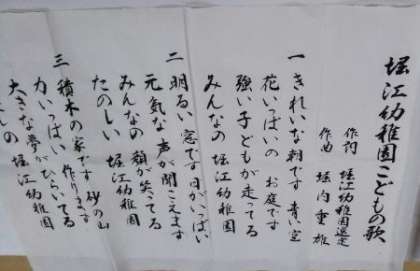 堀江幼稚園こどもの歌
作詞 堀江幼稚園選定
作曲 堀内重雄
一 きれいな朝です 青い空
花いっぱいの お庭です
強い子どもが走ってる
みんなの 堀江幼稚園
二 明るい窓です 日がいっぱい
元気な声が聞こえます
みんなの顔が笑ってる
たのしい 堀江幼稚園
三 積木の家です 砂の山
力いっぱい 作ります
大きな夢がひらいてる
堀江幼稚園